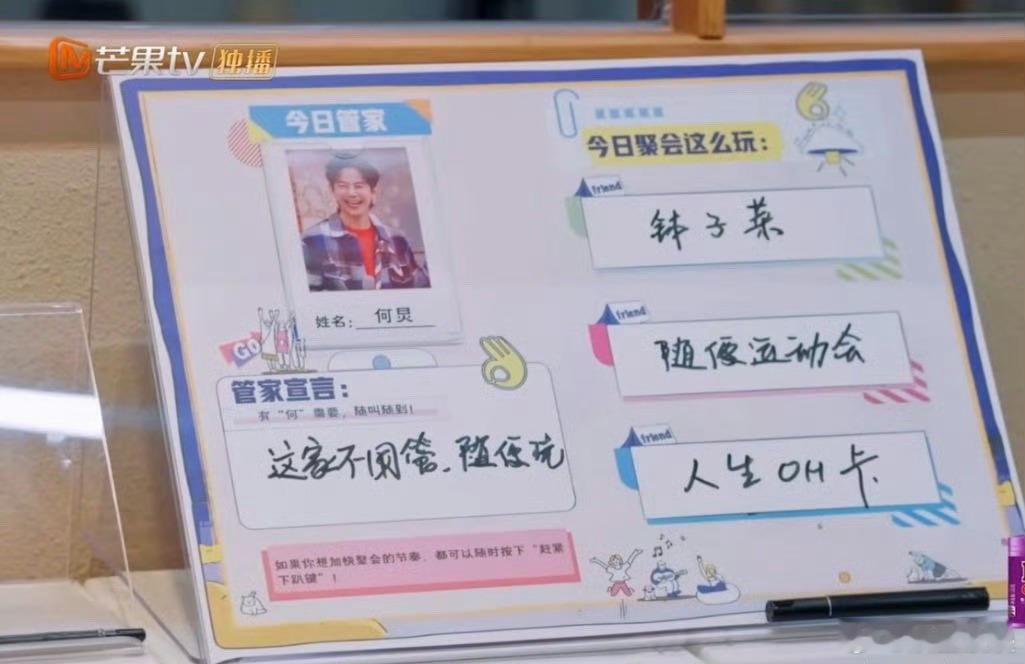 芒果tv 独播
今日管家
姓名：何炅
GO
管家宣言：
有“何”需要，随叫随到！
这家不用管、随便玩
如果你想加快聚会的节奏，都可以随时按下“赶紧
下趴键”！
今日聚会这么玩：
friend
钵子菜
friend
随便运动会
friend
人生OH卡